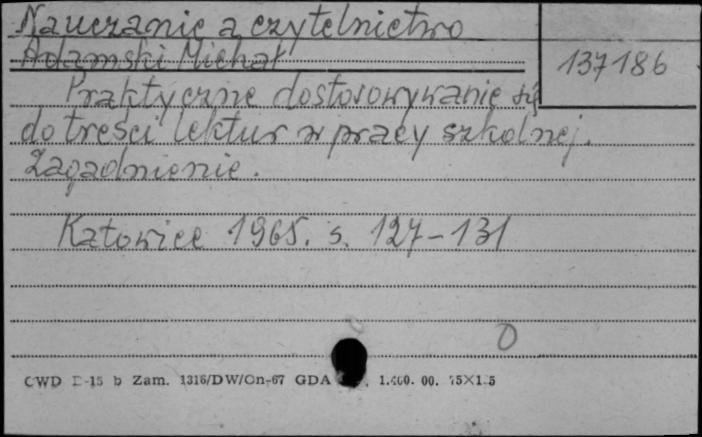 Nauczanie a czytelnictwo
137186
Adamski Michał
Praktyczne dostosowywanie się
do treści lektur w pracy szkolnej.
Zagadnienie.
Katowice 1965. s. 127-131
0
CWD D-15 b Zam. 1316/DW/On-67 GDA 00. 75X1 5